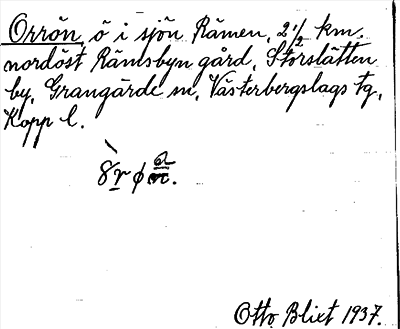 Orrön, ö i sjön Rämen, 2 1/2 km.
nordöst Rämsbyn gård, Storslätten
by, Grangärde sn, Västerbergslags fg,
Kopp l.
Otto Blixt 1937.